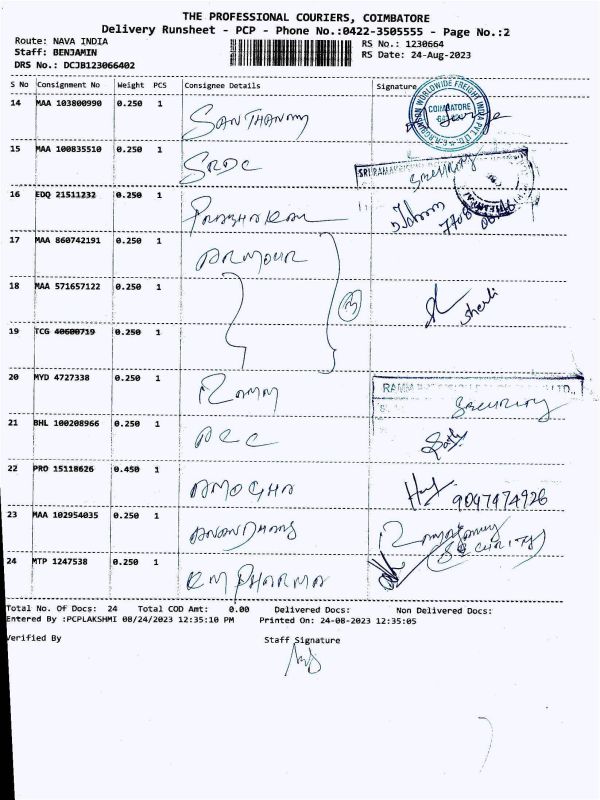 THE PROFESSIONAL COURIERS, COIMBATORE
Delivery Runsheet - PCP - Phone No.:0422-3505555 - Page No.:2
Route: NAVA INDIA RS No.: 1230664
Staff: BENJAMIN RS Date: 24-Aug-2023
DRS No.: DCJB123066402
S No Consignment No Weight PCS Consignee Details Signature
14 MAA 103800990 0.250 1 SANTHANAM
COIMBATORE
15 MAA 100835510 0.250 1 SRDC SECURITY
16 EDQ 21511232 0.250 1 PRABHAKAR
17 MAA 860742191 0.250 1 ARMOUR
18 MAA 571657122 0.250 1 3
19 TCG 40600719 0.250 1
20 MYD 4727338 0.250 1 RAMM SECURITY
21 BHL 100208966 0.250 1 ACC
22 PRO 15118626 0.450 1 AMOGHA 9047474926
23 MAA 102954035 0.250 1 (SECURITY)
24 MTP 1247538 0.250 1 KM PHARMA
Total No. Of Docs: 24 Total COD Amt: 0.00 Delivered Docs: Non Delivered Docs:
Entered By :PCPLAKSHMI 08/24/2023 12:35:10 PM Printed On: 24-08-2023 12:35:05
Verified By Staff Signature